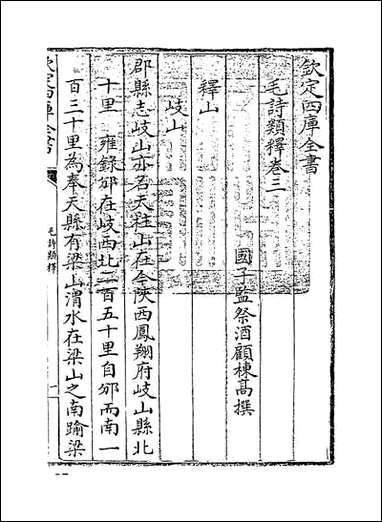 欽定四庫全書
毛詩類釋卷三
國子監祭酒顧棟髙撰
釋山
岐山
郡縣志岐山亦名天柱山在今陜西鳳翔府岐山縣北
十里 雍錄邠在岐西北二百五十里自邠而南一
百三十里為奉天縣有梁山渭水在梁山之南踰梁
欽定四庫全書
毛詩類釋
一